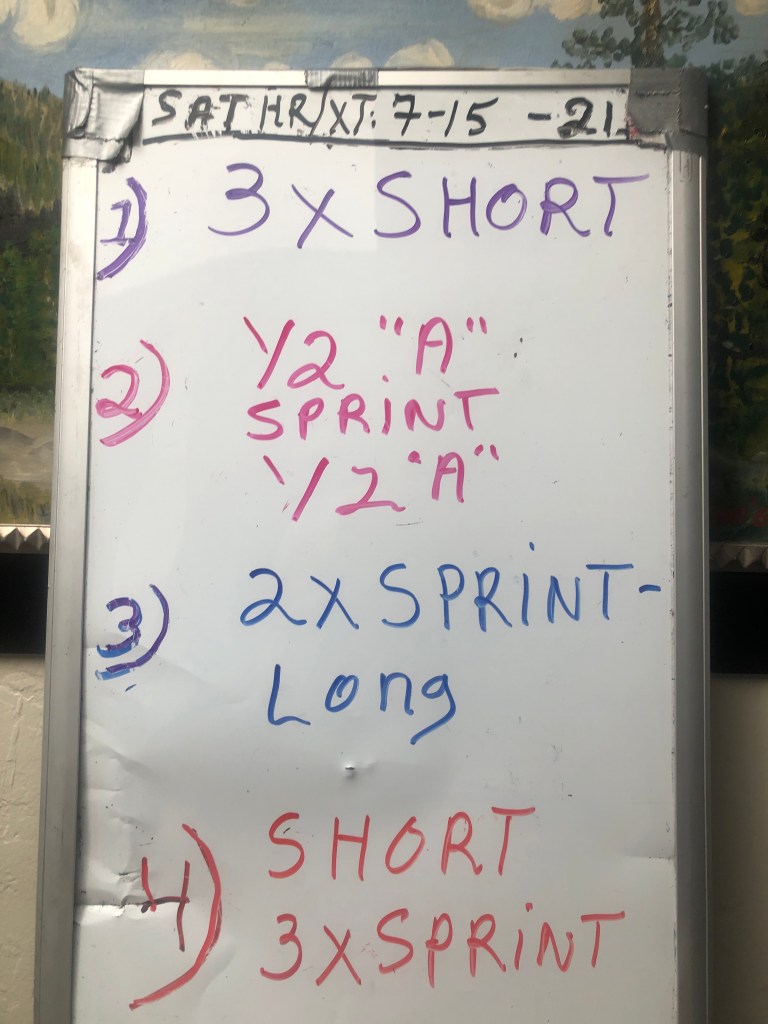 SAT HR/XT: 7-15 -21
1) 3 X SHORT
2) 1/2 "A"
SPRINT
1/2 "A"
3) 2X SPRINT-
Long
4) SHORT
3X SPRINT